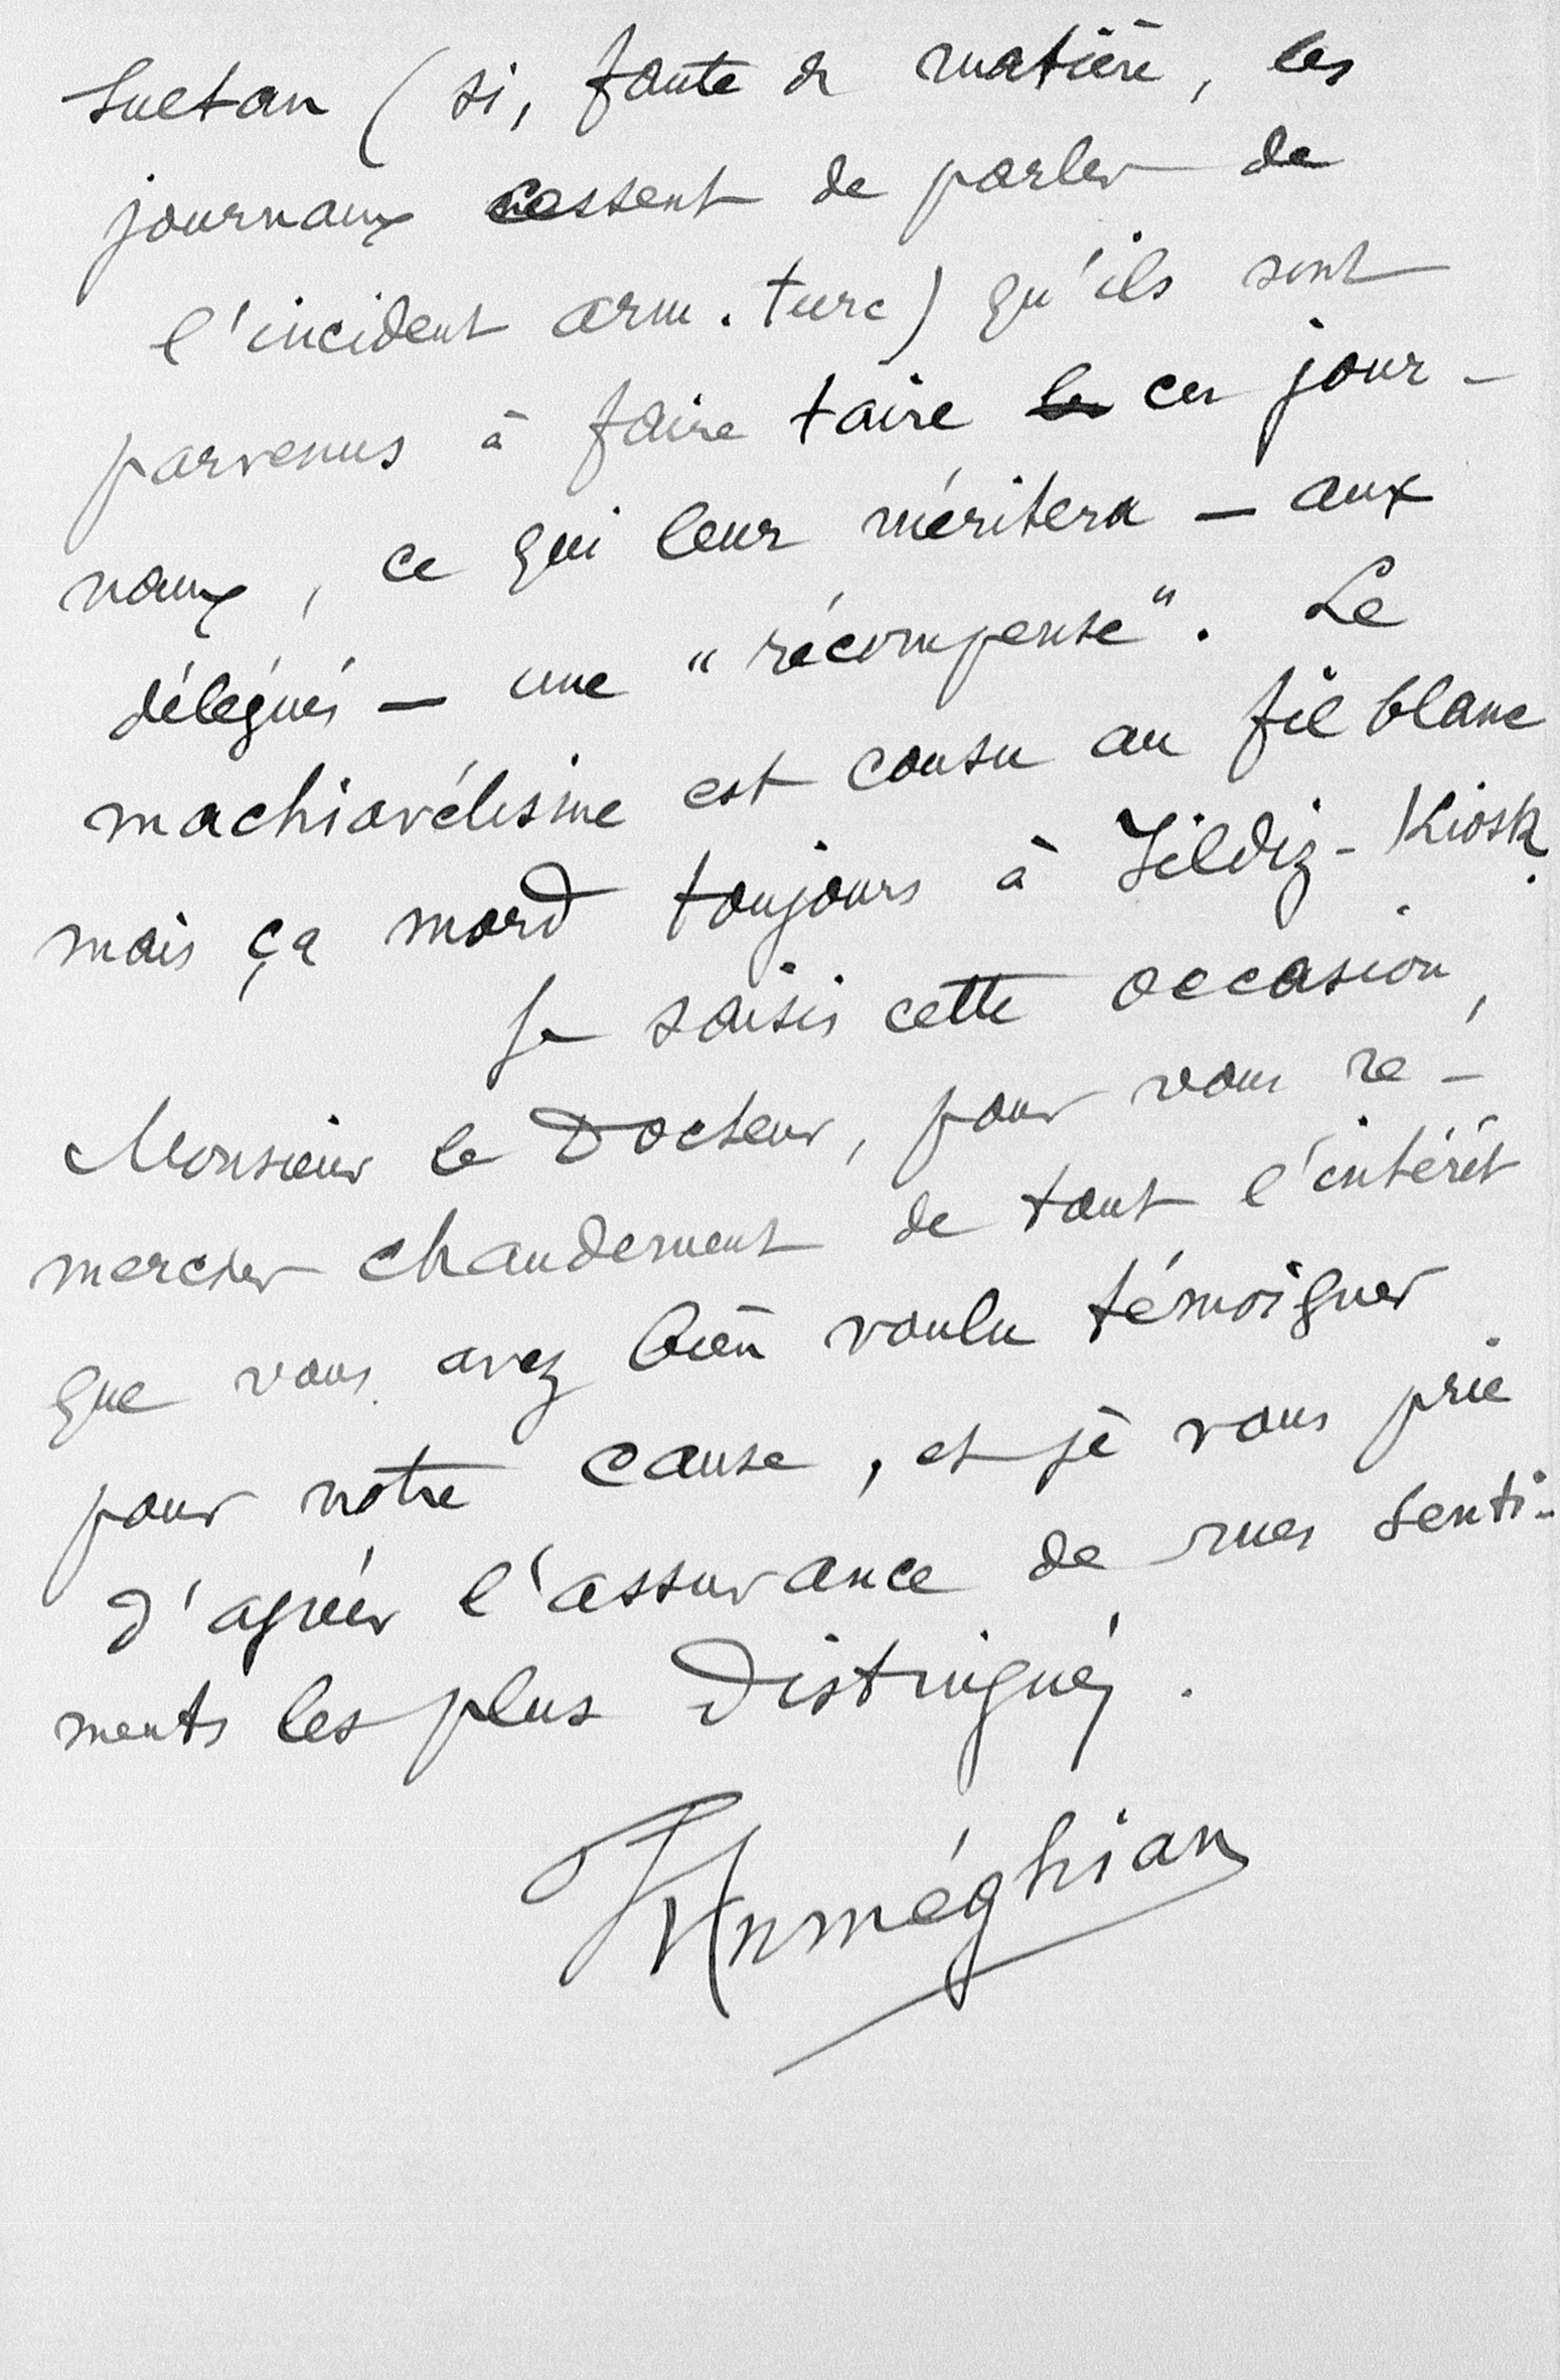 Sultan (si, faute de matière, les
journaux cessent de parler de
l'incident arm. turc) qu'ils sont
parvenus à faire taire les ces jour-
naux, ce qui leur méritera — aux
délégués — une "récompense". Le
machiavélisme est cousu au fil blanc
mais ça mord toujours à Yildiz-Kiosk.
Je saisis cette occasion,
Monsieur le Docteur, pour vous re-
mercier chaudement de tout l'intérêt
que vous avez bien voulu témoigner
pour notre cause, et je vous prie
d'agréer l'assurance de mes senti-
ments les plus distingués.